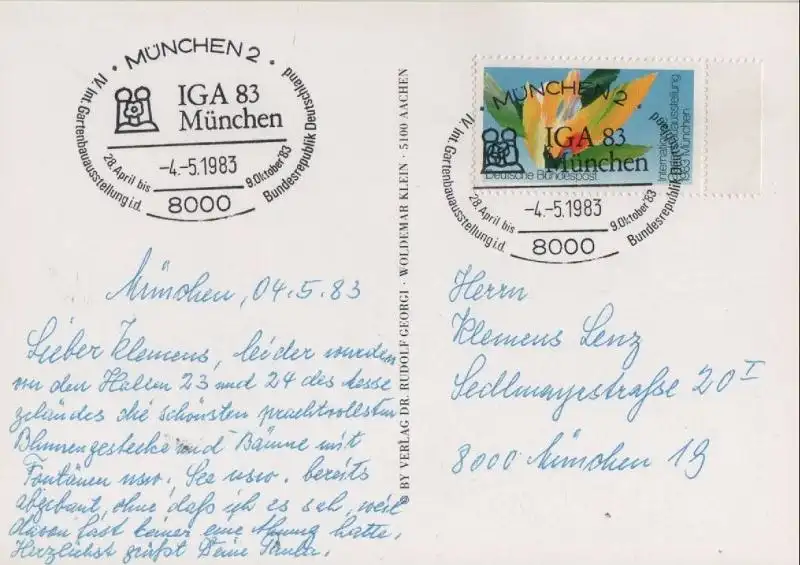 · MÜNCHEN 2 ·
IV. Int. Gartenbauausstellung i.d. Bundesrepublik Deutschland
IGA 83
München
-4.-5.1983
28. April bis 9. Oktober '83
8000
· MÜNCHEN 2 ·
IV. Int. Gartenbauausstellung i.d. Bundesrepublik Deutschland
IGA 83
München
-4.-5.1983
28. April bis 9. Oktober '83
8000
Deutsche Bundespost
Internationale
Gartenbauausstellung
1983 München
© BY VERLAG DR. RUDOLF GEORGI · WOLDEMAR KLEIN · 5100 AACHEN
München, 04.5.83
Lieber Klemens, leider wurden
von den Hallen 23 und 24 des Messe
geländes die schönsten prachtvollsten
Blumengestecke und Bäume mit
Fontänen usw. See usw. bereits
abgebaut, ohne daß ich es sah, weil
davon fast keiner eine Ahnung hatte.
Herzlichst grüßt Deine Paula.
Herrn
Klemens Lenz
Sedlmayrstraße 20 I
8000 München 19